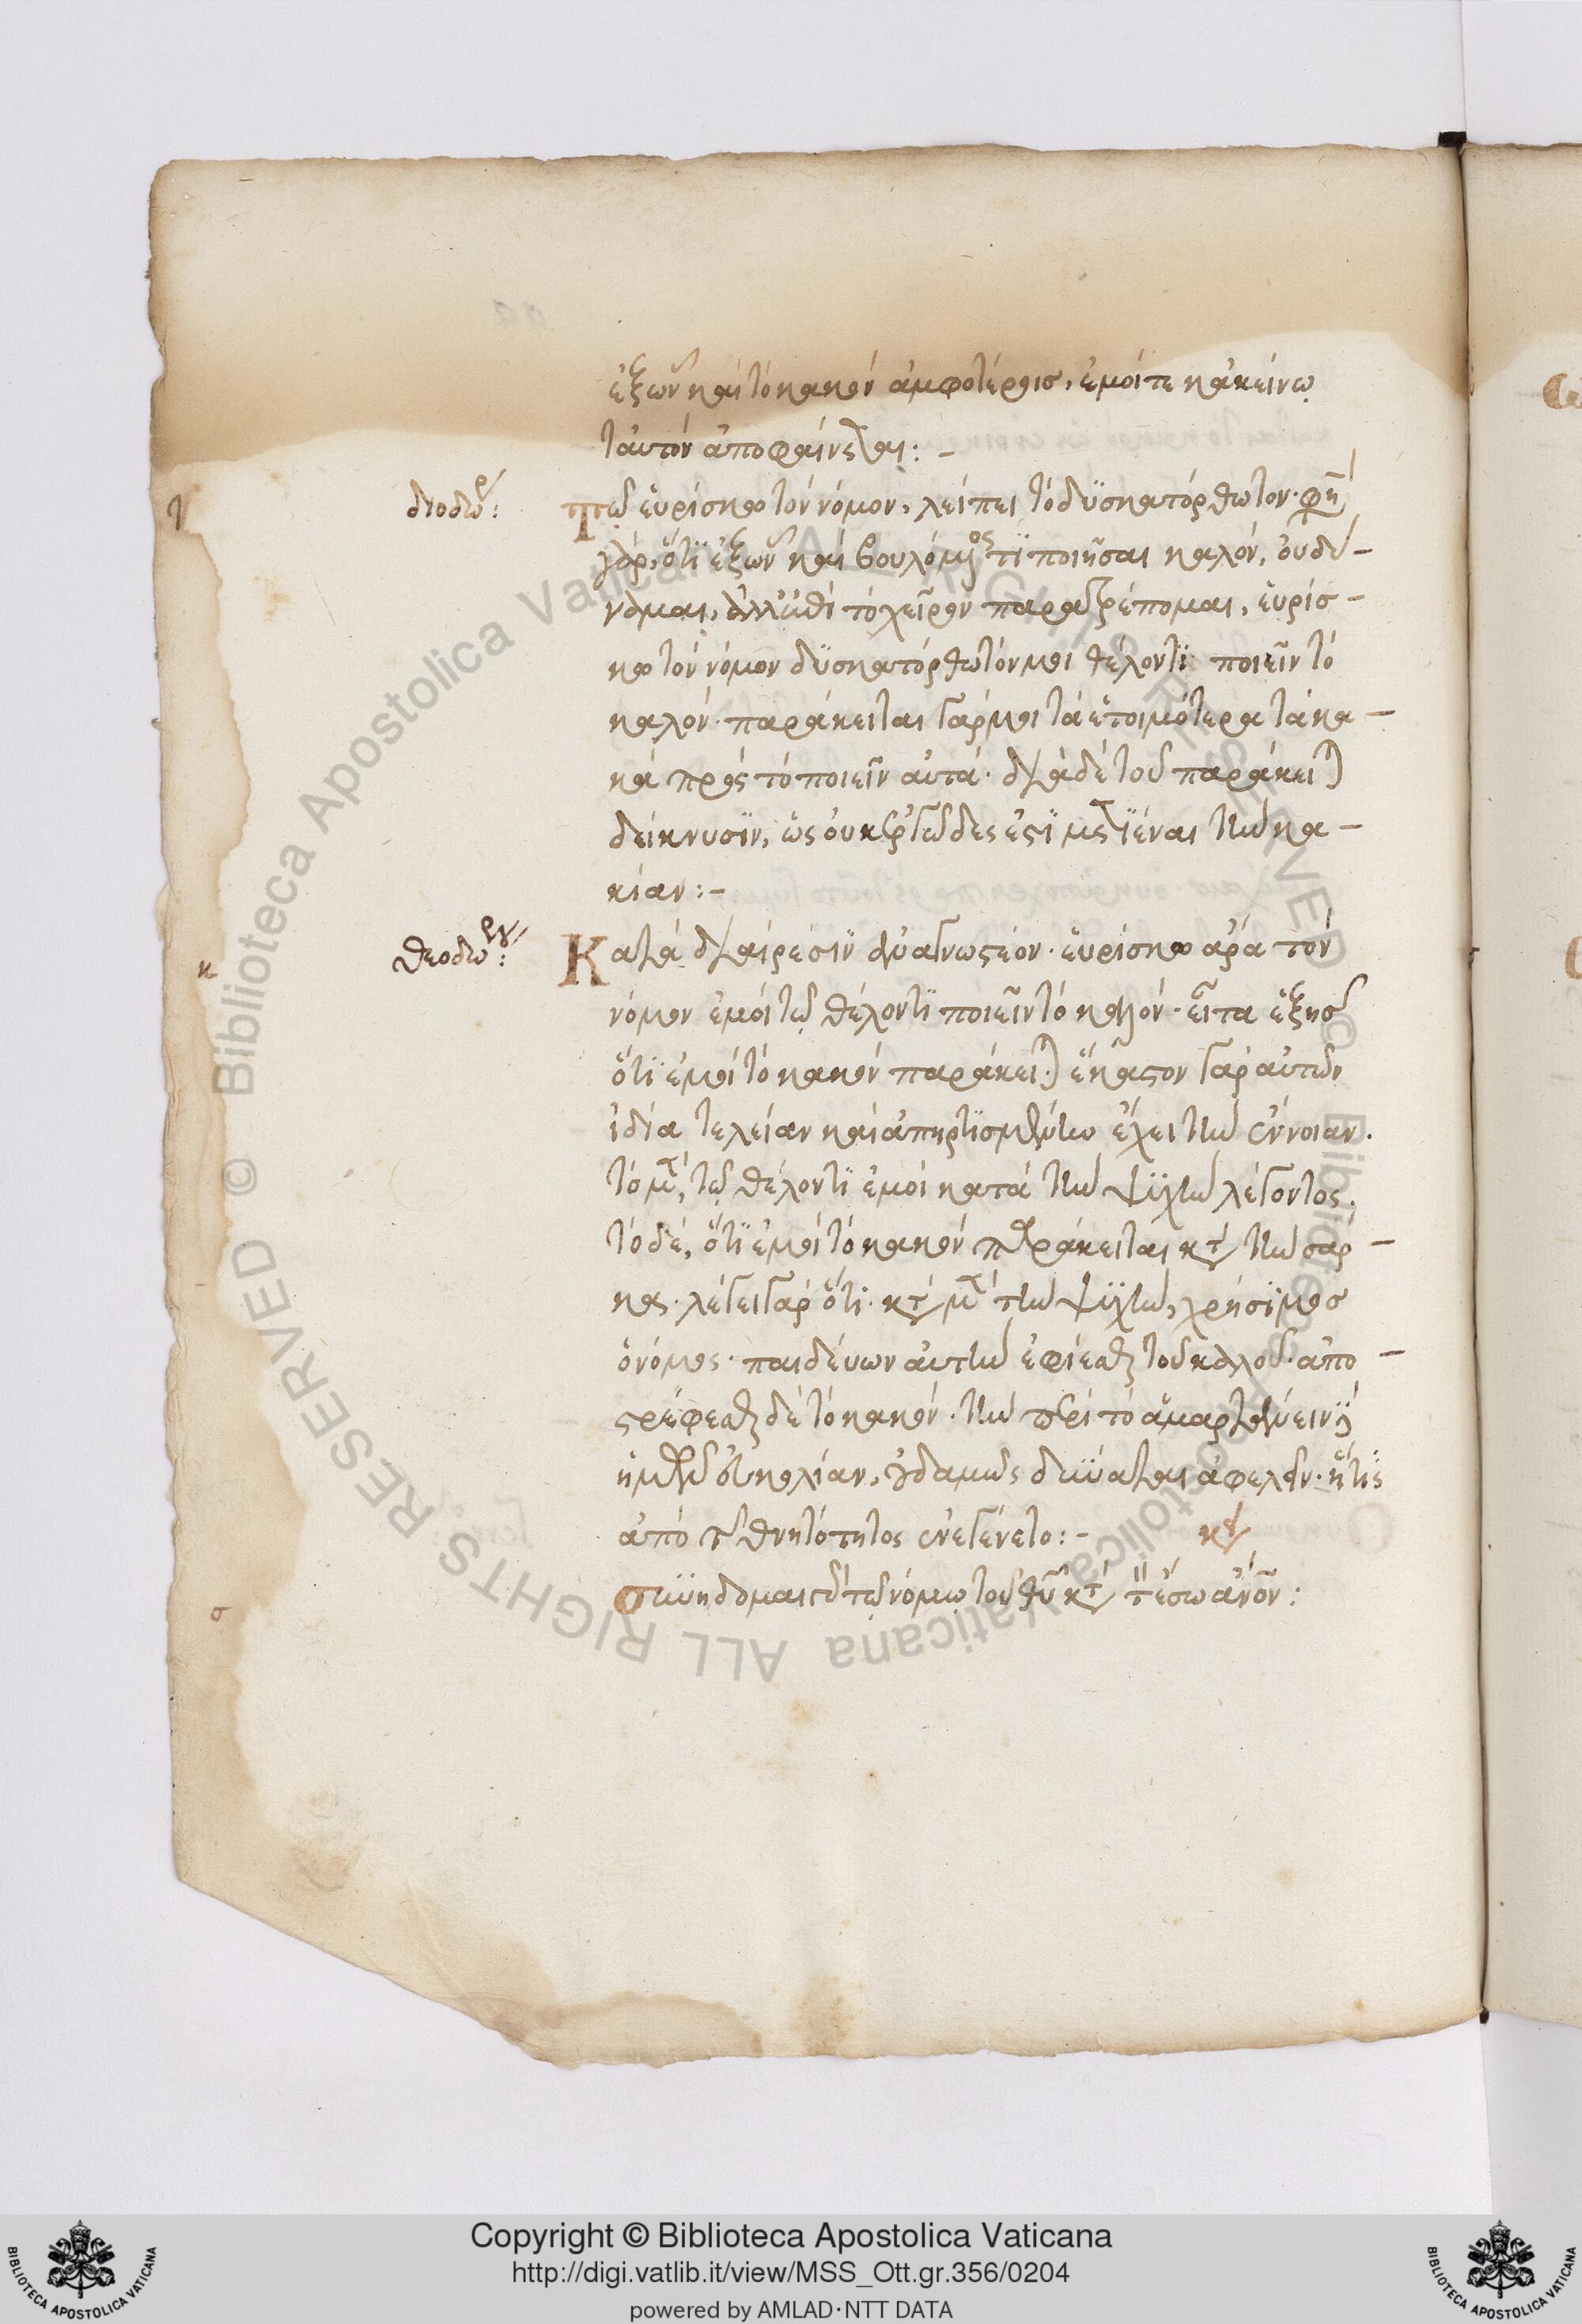 ἐξὼν καὶ τὸ κακὸν ἀμφοτέροις, ἐμοί τε κἀκείνῳ
ταυτὸν ἀποφαίνεται: –
διοδώρ: τῷ εὑρίσκω τὸν νόμον, λείπει τὸ δυσκατόρθωτον· φη
γὰρ, ὅτι ἐξὼν καὶ βουλόμενός τι ποιῆσαι καλόν, οὐ δύ –
ναμαι, ἀλλ' ἐπὶ τὸ χεῖρον παρατρέπομαι, εὑρίσ –
κω τὸν νόμον δυσκατόρθωτόν μοι θέλοντι ποιεῖν τὸ
καλόν· παράκειται γάρ μοι τὰ ἑτοιμότερα τὰ κα –
κὰ πρὸς τὸ ποιεῖν αὐτά· διὰ δὲ τοῦ παράκειται
δείκνυσιν, ὡς οὐκ ἐργῶδες ἐστὶ μετιέναι τὴν κα –
κίαν: –
θεοδώρου: Κατὰ διαίρεσιν ἀναγνωστέον· εὑρίσκω ἄρα τὸν
νόμον ἐμοὶ τῷ θέλοντι ποιεῖν τὸ καλόν· εἶτα ἑξῆς
ὅτι ἐμοὶ τὸ κακὸν παράκειται· ἕκαστον γὰρ αὐτῶν
ἰδία τελείαν καὶ ἀπηρτισμένην ἔχει τὴν ἔννοιαν.
τὸ μὲν, τῷ θέλοντι ἐμοὶ κατὰ τὴν ψυχὴν λέγοντος.
τὸ δὲ, ὅτι ἐμοὶ τὸ κακὸν παράκειται κατὰ τὴν σάρ –
κα· λέγει γὰρ ὅτι· κατὰ μὲν τὴν ψυχὴν, χρήσιμος
ὁ νόμος· παιδεύων αὐτὴν ἐφίεσθαι τοῦ καλοῦ· ἀπο –
στρέφεσθαι δὲ τὸ κακόν· τὴν περὶ τὸ ἁμαρτάνειν
ἡμῶν εὐκολίαν, οὐδαμῶς δύναται ἀφελεῖν· ἥτις
ἀπὸ τῆς θνητότητος ἐνεγένετο: – κγ
συνήδομαι γὰρ τῷ νόμῳ τοῦ θῦ κατὰ τὸν ἔσω ἄνον:
ν
κ
σ
Copyright © Biblioteca Apostolica Vaticana
http://digi.vatlib.it/view/MSS_Ott.gr.356/0204
powered by AMLAD·NTT DATA
Biblioteca Apostolica Vaticana ALL RIGHTS RESERVED ©
BIBLIOTECA APOSTOLICA VATICANA
BIBLIOTECA APOSTOLICA VATICANA